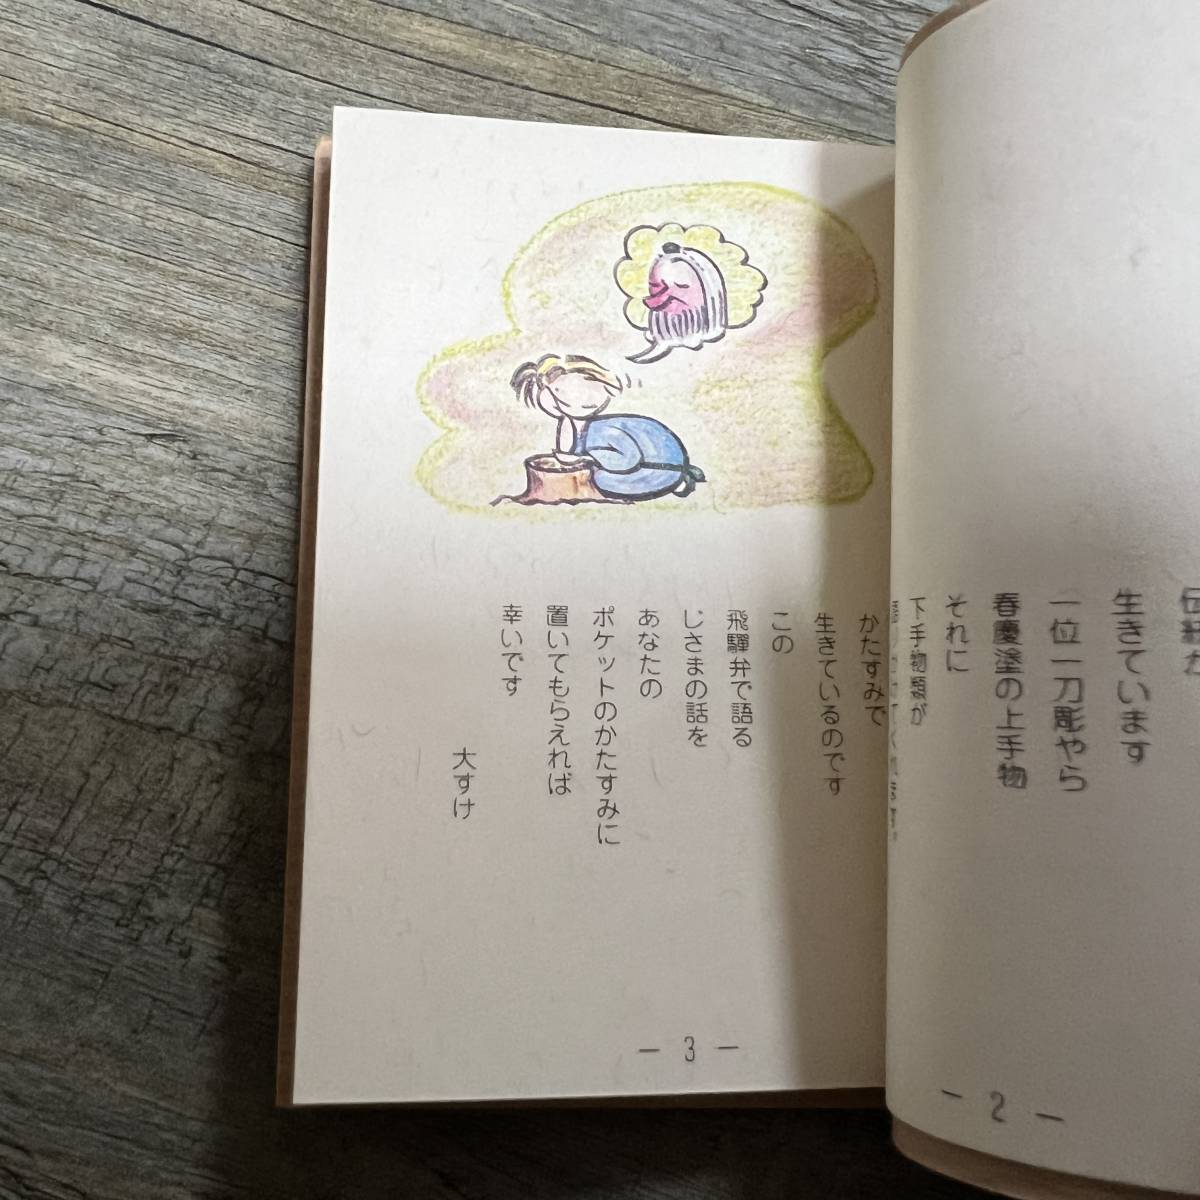 生きています
一位一刀彫やら
春慶塗の上手物
それに
下手物類が
— 2 —
かたすみで
生きているのです
この
飛驒弁で語る
じさまの話を
あなたの
ポケットのかたすみに
置いてもらえれば
幸いです
大すけ
— 3 —